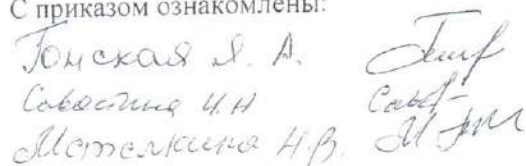 С приказом ознакомлены:
Томская Я. А.
Савостина И.Н
Мателкина Н.В.